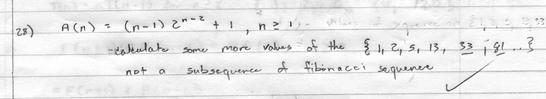 28) A(n) = (n-1) 2^{n-2} + 1 , n ≥ 1
calculate some more values of the { 1, 2, 5, 13, 33 , 81 ...}
not a subsequence of fibinacci sequence